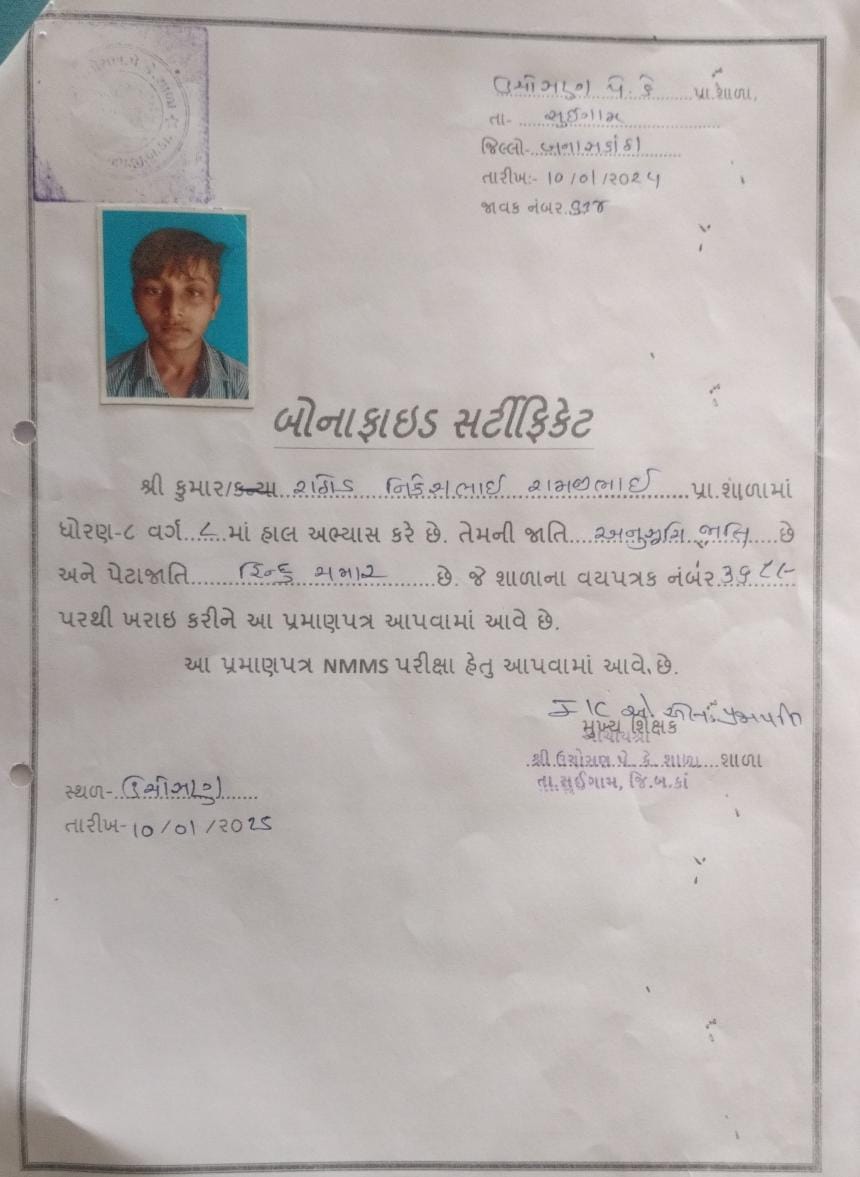 ઉચોસણ પે. કે પ્રા.શાળા,
તા- સુઈગામ
જિલ્લો- બનાસકાંઠા
તારીખ:- 10/01/૨૦૨૫
જાવક નંબર.
બોનાફાઇડ સર્ટીફિકેટ
શ્રી કુમાર/કન્યા રાઠોડ નિકેશભાઈ રામજીભાઈ પ્રા.શાળામાં
ધોરણ-૮ વર્ગ ૮ માં હાલ અભ્યાસ કરે છે. તેમની જાતિ અનુસૂચિત જાતિ છે
અને પેટાજાતિ હિન્દુ ચમાર છે. જે શાળાના વયપત્રક નંબર
પરથી ખરાઇ કરીને આ પ્રમાણપત્ર આપવામાં આવે છે.
આ પ્રમાણપત્ર NMMS પરીક્ષા હેતુ આપવામાં આવે છે.
મુખ્ય શિક્ષક
શ્રી ઉચોસણ પે. કે. શાળા શાળા
તા.સુઈગામ, જિ.બ.કાં
સ્થળ- ઉચોસણ
તારીખ-10/01/૨૦25